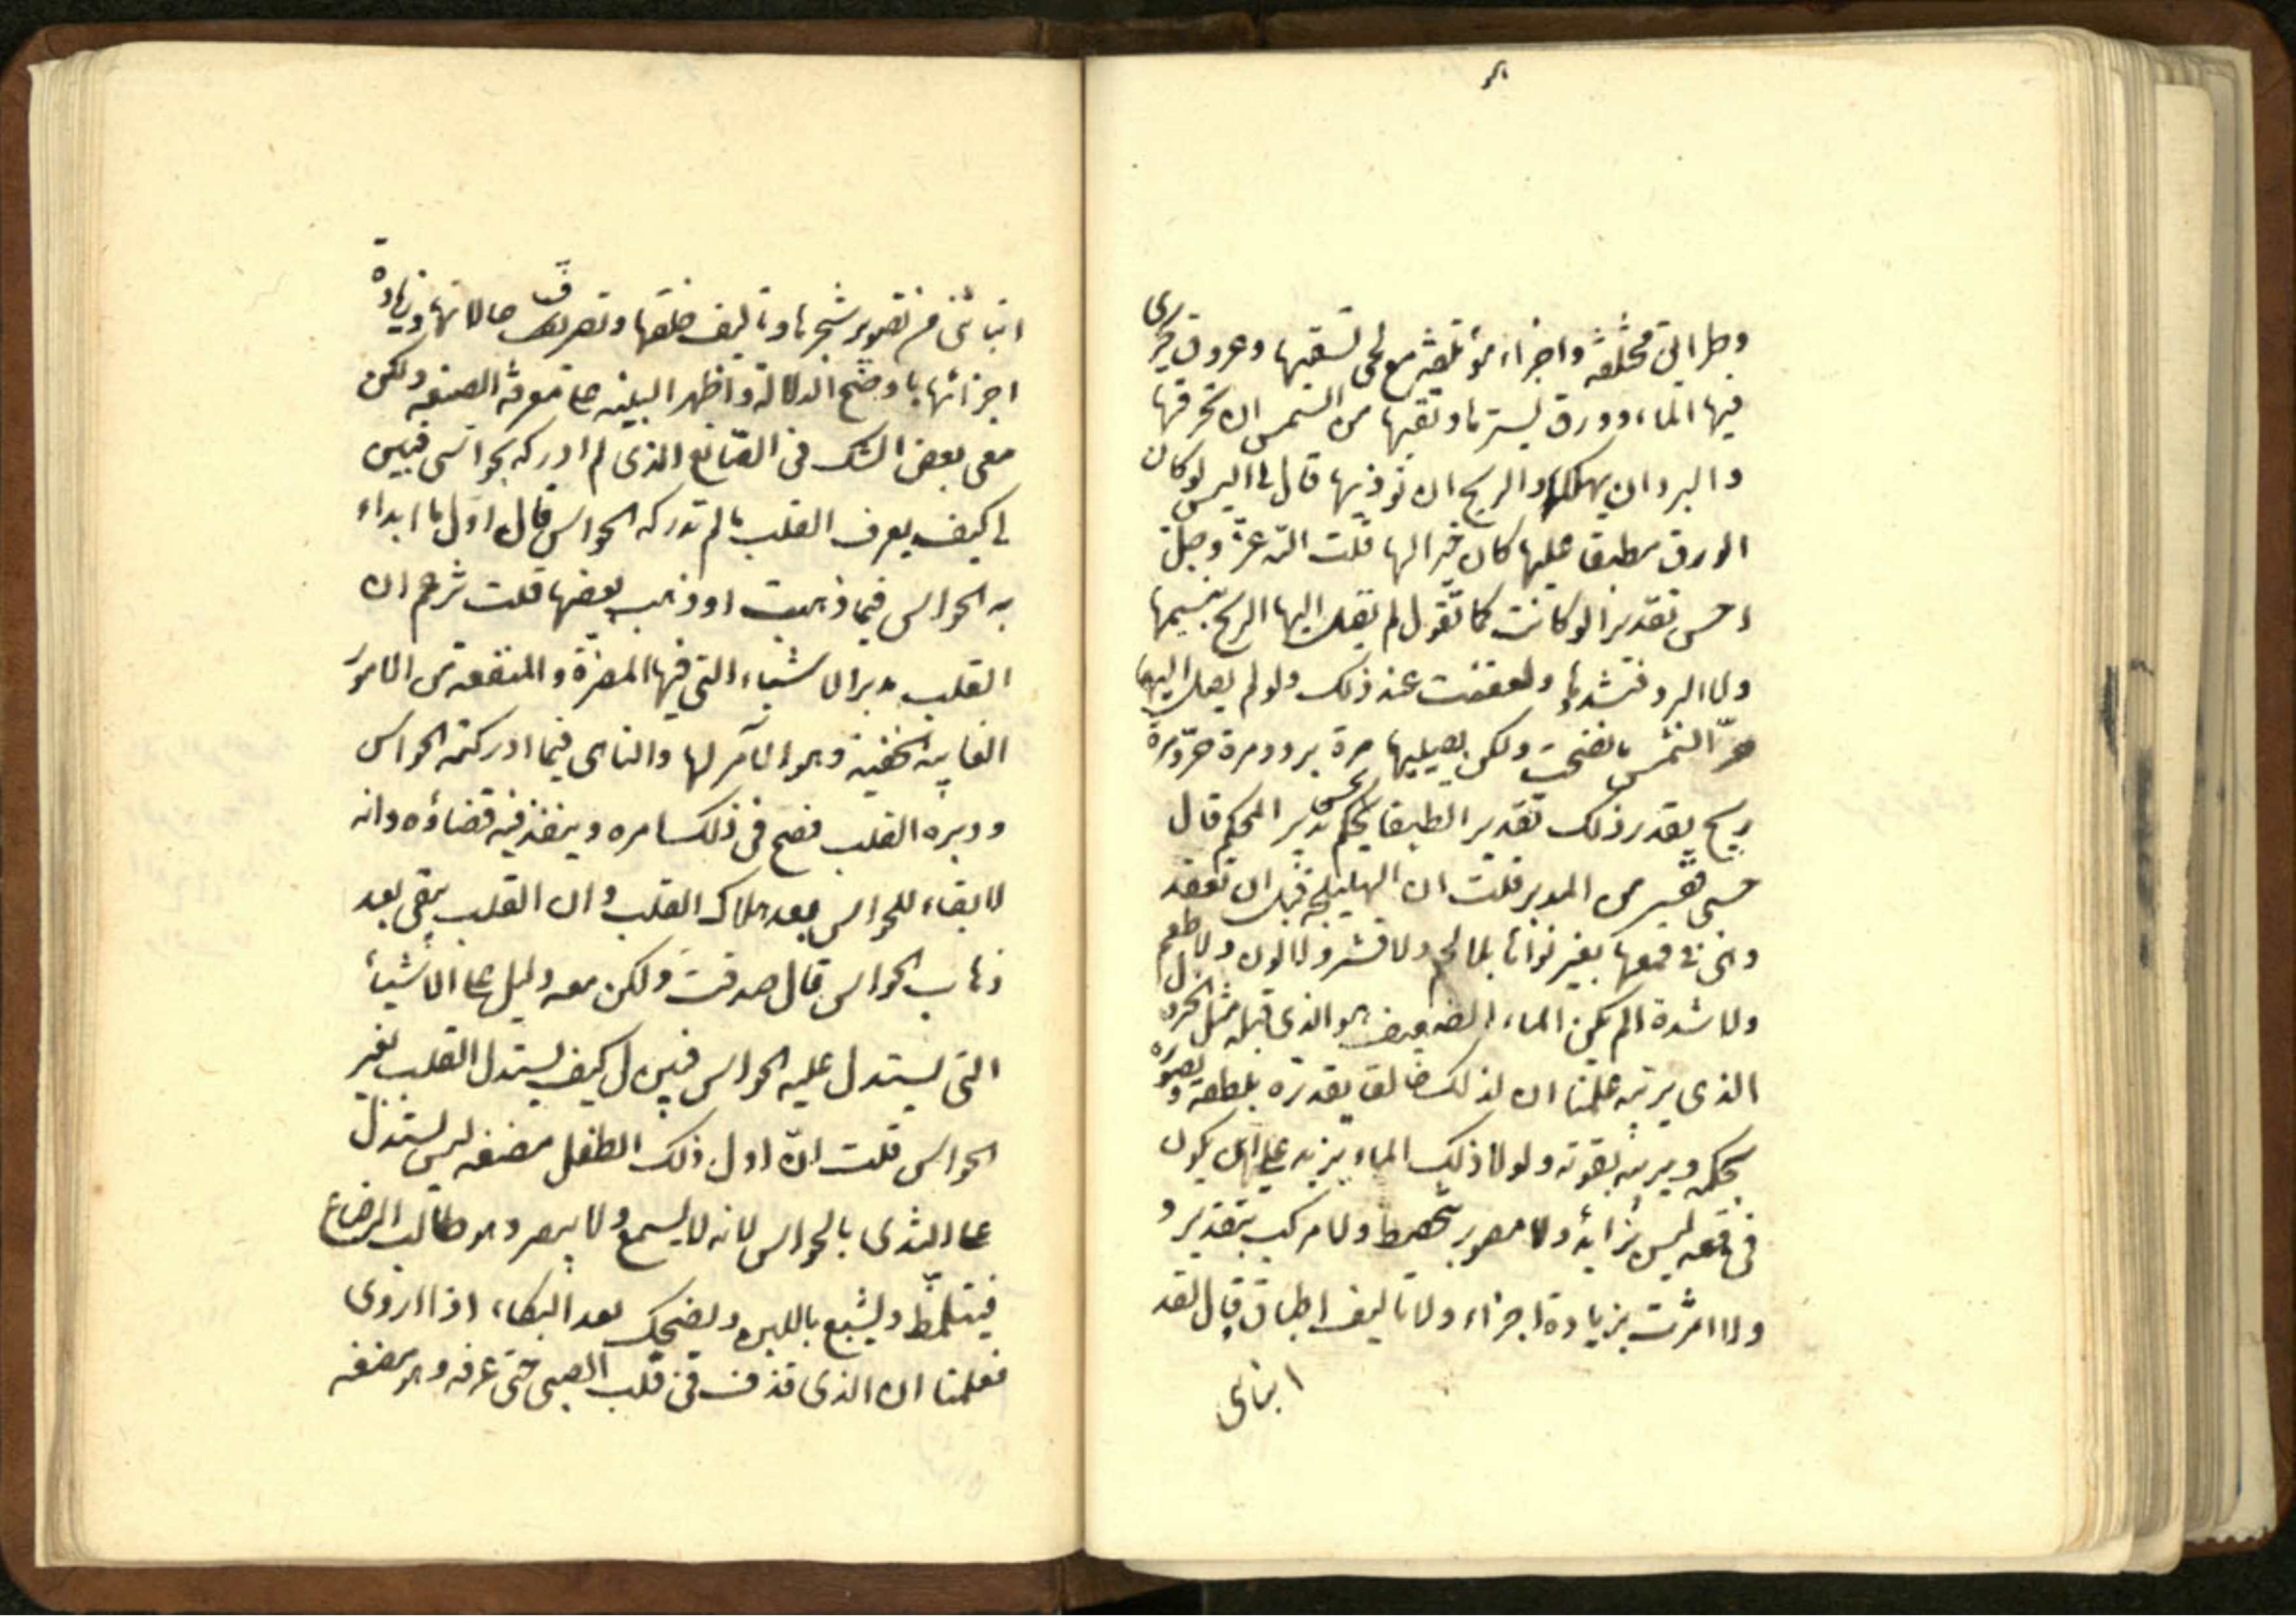 وطرائق مختلفة واجزاء مؤتلفة مع لحى تسقيها وعروق يجرى
فيها الماء وورق يسترها وتقيها من الشمس ان تحرقها
والبرد ان يهلكها والريح ان تؤذيها قال لى اليس لو كان
الورق مطبقا عليها كان خيرا لها قلت الله عز وجل
احسن تقديرا لو كانت كما تقول لم يصل اليها الريح بنسيمها
ولا البرد فتشدها ولعفنت عند ذلك ولو لم يصل اليها
حر الشمس ما نضجت ولكن يصيبها مرة برد ومرة حر ومرة
ريح يقدر ذلك تقدير الطبقا بحكم تدبير المحكم قال
حسبى من المدبر قلت ان الهليلجة قبل ان تعقد
وهى فى قمعها بغير نواة بلا لحم ولا قشر ولا لون ولا طعم
ولا شدة الم يكن الماء الضعيف هو الذى قبله مثل الخردل
الذى يربيه علمنا ان لذلك خالق بقدرته بلطفه ويصوره
بحكمه ويربيه بقوته ولولا ذلك الماء يزيد على ان يكون
فى قمعه ليس بزائد ولا مصور بتخطيط ولا مركب بتقدير و
ولا اثمرت بزيادة اجزاء ولا تاليف اطباق قال لقد
انبانى
انبأنى من تصوير شجرها وتاليف خلقها وتصريف حالاتها وزيادة
اجزائها باوضح الدلالة واظهر البينه على معرفة الصنعه ولكن
معى بعض الشك فى الصانع الذى لم ادركه بحواسى فبين
لى كيف يعرف القلب ما لم تدركه الحواس قال اول ما ابداء
به الحواس فيما ذهبت او ذهب بعضها قلت تزعم ان
القلب مدبر الاشياء التى فيها المضرة والمنفعة من الامور
الغايبه الخفيه وهو الآمر لها والناهى فيما ادركته الحواس
ودبره القلب فصح فى ذلك امره وينفذ فيه قضاؤه وانه
لا بقاء للحواس بعد هلاك القلب وان القلب يبقى بعد
ذهاب الحواس قال صدقت ولكن معه دليل على الاشياء
التى يستدل عليه الحواس فبين لى كيف يستدل القلب بغير
الحواس قلت ان اول ذلك الطفل مضغه ليس يستدل
على الثدى بالحواس لانه لا يسمع ولا يبصر وهو طالب الرضاع
فيتلمظ ويشبع باللبن ويضحك بعد البكاء اذا اروى
فعلمنا ان الذى قذف فى قلب الصبى حتى عرفه وهو مضغه